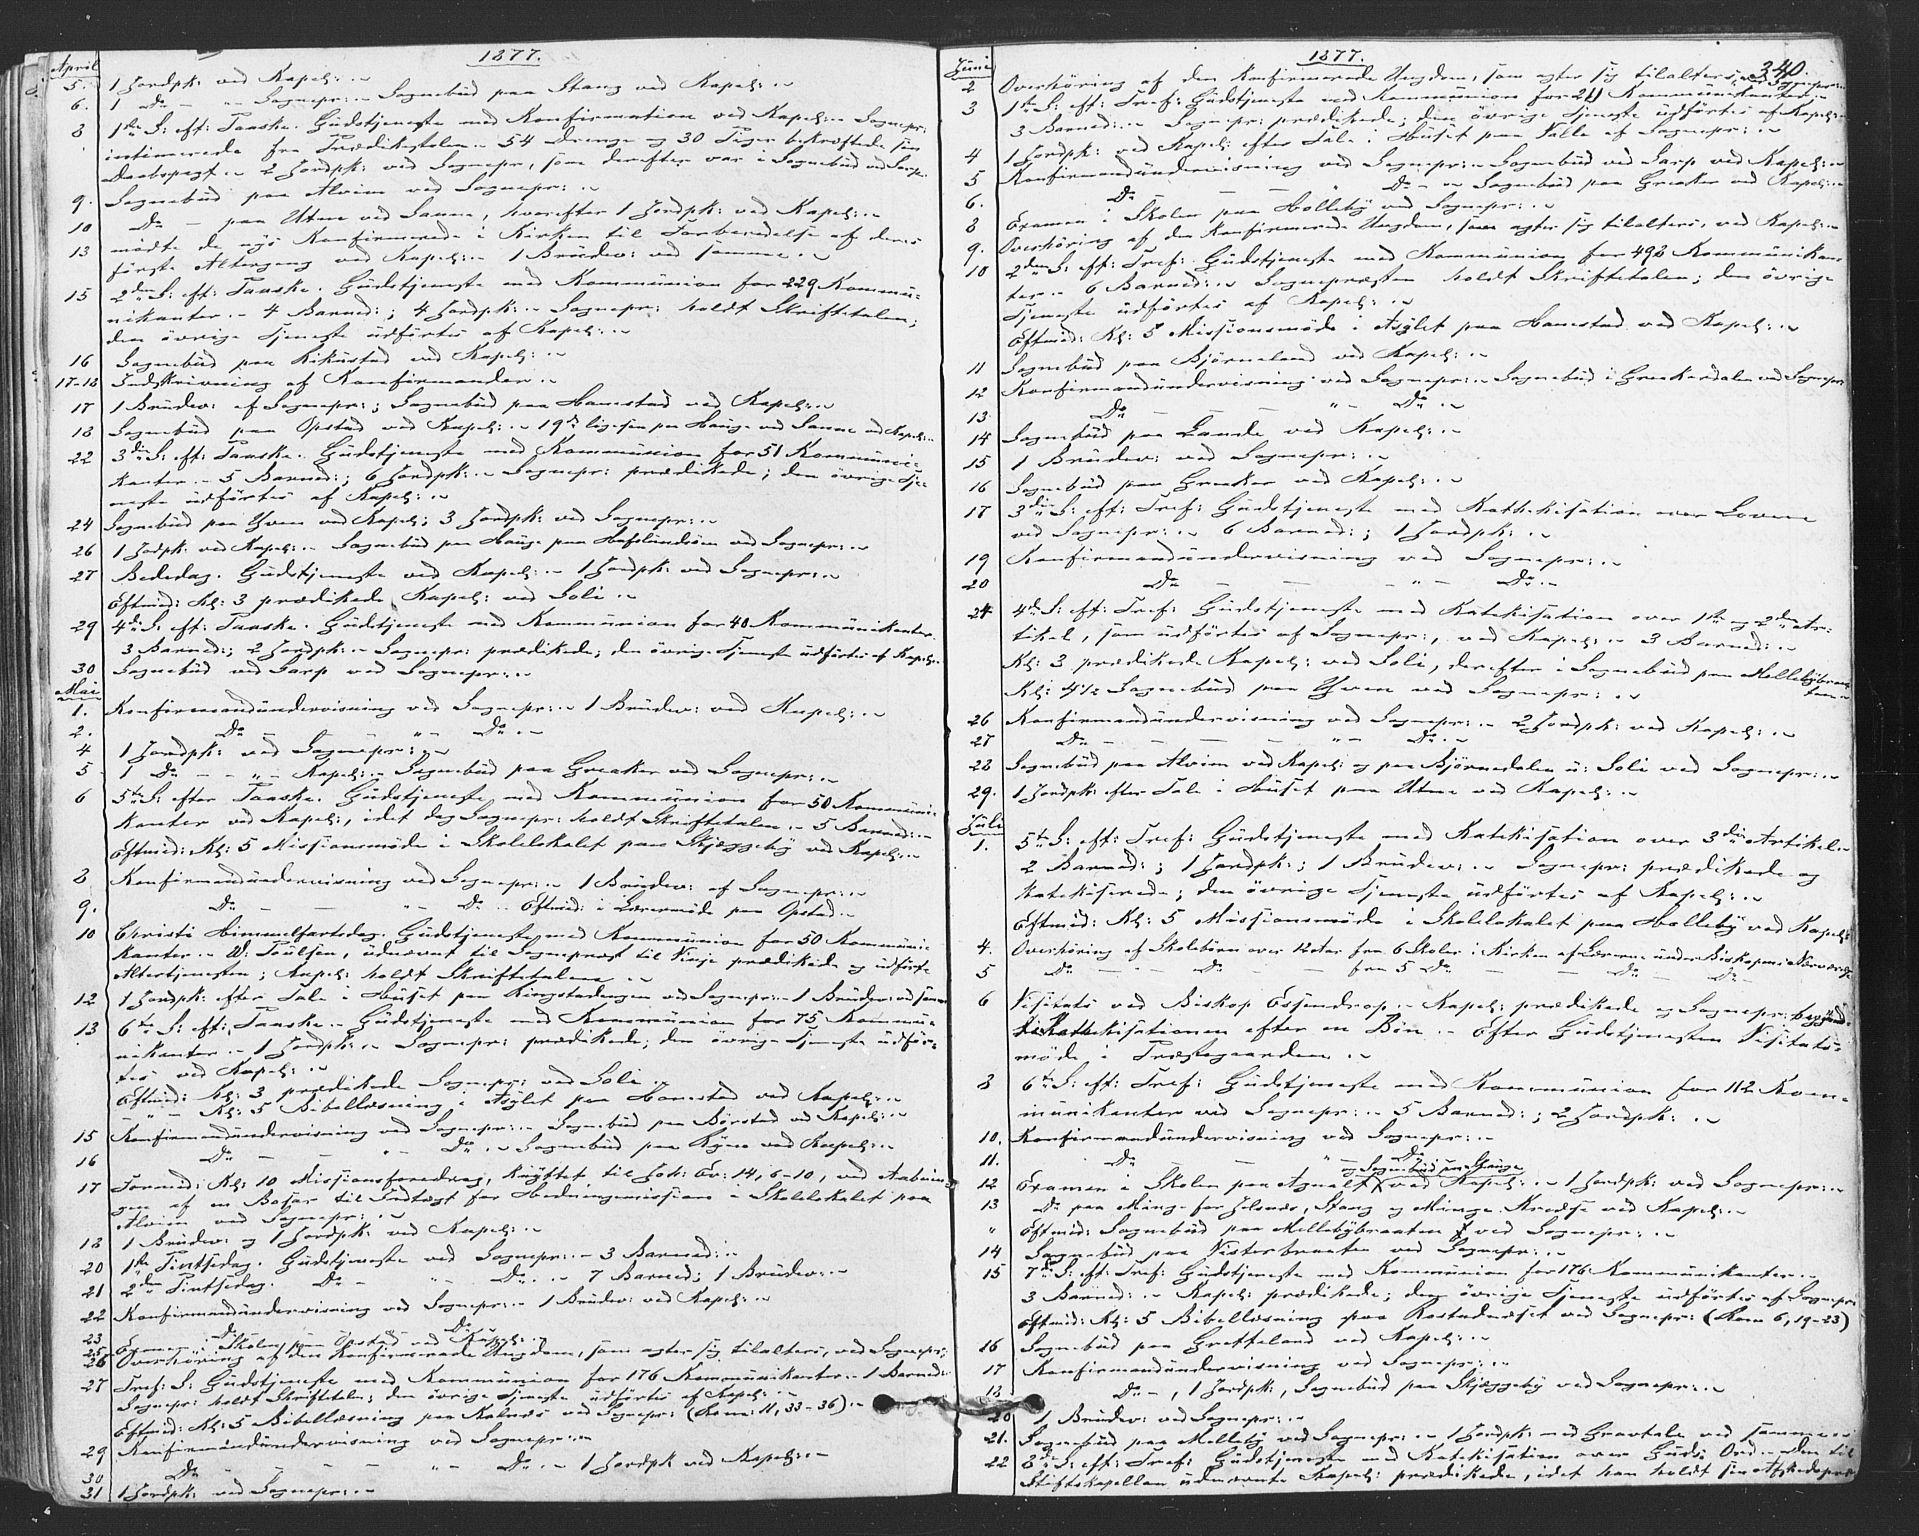 1877.
April
5. 1 Jordpk: ved Kapel:.
6. 1 Do - " - Sognepr:. Sognebud paa Stang ved Kapel:.
8 1ste S: eft: Paaske. Gudstjeneste med Konfirmation ved Kapel:. Sognepr:
intimerede fra Prædikestolen. 54 Drenge og 30 Piger bekræftede sin
Daabspagt. 2 Jordpk: ved Sognepr:, som derefter var i Sognebud ved Sarp.
9. Sognebud paa Alvim ved Sognepr:.
10 Do - paa Utne ved Sanne, hvorefter 1 Jordpk: ved Kapel:.
13 mødte de nys Konfirmerede i Kirken til Forberedelse af deres
første Altergang ved Kapel:. 1 Brudev: ved samme.
15 2den S: eft: Paaske. Gudstjeneste med Kommunion for 229 Kommu-
nikanter. 4 Barned:; 4 Jordpk:. Sognepr: holdt Skriftetalen;
den øvrige Tjeneste udførtes af Kapel:.
16 Sognebud paa Kikustad ved Kapel:.
17-18 Indskrivning af Konfirmander.
17 1 Brudev: af Sognepr:; Sognebud paa Hanestad ved Kapel:.
18 Sognebud paa Opstad ved Kapel:. 19de ligesaa paa Hauge ved Sanne ved Kapel:.
22 3die S: eft: Paaske. Gudstjeneste med Kommunion for 51 Kommuni-
kanter. 5 Barned:; 6 Jordpk:. Sognepr: prædikede; den øvrige Tje-
neste udførtes af Kapel:.
24 Sognebud paa Yven ved Kapel:; 3 Jordpk: ved Sognepr:.
26 1 Jordpk: ved Kapel:. Sognebud paa Hauge paa Hafslundsøen ved Sognepr:.
27 Bededag. Gudstjeneste ved Kapel:. 1 Jordpk: ved Sognepr:.
Eftmid: Kl: 3 prædikede Kapel: ved Soli.
29 4de S: eft: Paaske. Gudstjeneste med Kommunion for 40 Kommunikanter.
3 Barned:; 2 Jordpk:. Sognepr: prædikede; den øvrige Tjeneste udførtes af Kapel:.
30 Sognebud ved Sarp ved Sognepr:.
Mai
1. Konfirmandundervisning ved Sognepr:. 1 Brudev: ved Kapel:.
2. Do " - Do.
4 1 Jordpk: ved Sognepr:.
5 1 Do - " - Kapel:. Sognebud paa Greaker ved Sognepr:.
6 5te S: efter Paaske. Gudstjeneste med Kommunion for 50 Kommuni-
kanter ved Kapel:, idet dog Sognepr: holdt Skriftetalen. 5 Barned:.
Eftmid: Kl: 5 Missionsmøde i Skolelokalet paa Skjæggeby ved Kapel:.
8 Konfirmandundervisning ved Sognepr:. 1 Brudev: af Sognepr:.
9. Do - - " - Do. Eftmid: i Lærermøde paa Opstad.
10 Christi Himmelfartsdag. Gudstjeneste med Kommunion for 50 Kommuni-
kanter. W: Poulsen, udnævnt til Sogneprest til Vinje prædikede og udførte
Altertjenesten; Kapel: holdt Skriftetalen.
12 1 Jordpk: efter Tale i Huset paa Ringstadengen ved Sognepr:. 1 Brudev: ved samme
13 6te S: eft: Paaske. Gudstjeneste med Kommunion for 75 Kommu-
nikanter. 1 Jordpk:. Sognepr: prædikede; den øvrige Tjeneste udfør-
tes ved Kapel:.
Eftmid: Kl: 3 prædikede Sognepr: ved Soli.
" - Kl: 5 Bibellæsning i Asylet paa Hanestad ved Kapel:.
15 Konfirmandundervisning ved Sognepr:. Sognebud paa Børstad ved Kapel:.
16 Do - - " - Do. Sognebud paa Ryen ved Kapel:.
17 Formid: Kl: 10 Missionsforedrag, knyttet til Joh: Ev: 14, 6-10, ved Aabnin-
gen af en Basar til Indtægt for Hedningemissionen i Skolelokalet paa
Alvim ved Sognepr:.
18 1 Brudev: og 1 Jordpk: ved Kapel:.
20 1ste Pintsedag. Gudstjeneste ved Sognepr:. 3 Barned:.
21 2den Pintsedag. Do - " - Do. 7 Barned:; 1 Brudev:.
22 Konfirmandundervisning ved Sognepr:. 1 Brudev: ved Kapel:.
23 Do " Do
25 Examen i Skolen paa Opstad ved Kapel:.
26 Overhøring af den Konfirmerede Ungdom, som agter sig tilalters, ved Sognepr:
27 Tref: S: Gudstjeneste med Kommunion for 176 Kommunikanter. 1 Barned:
Sognepr: holdt Skriftetalen; den øvrige Tjeneste udførtes af Kapel:.
Eftmid: Kl: 5 Bibellæsning paa Kalnæs ved Sognepr: (Rom: 11, 33-36).
29 Konfirmandundervisning ved Sognepr:.
30 Do - - - " - Do. 1 Jordpk ved Kapel:.
31 1 Jordpk: ved Sognepr:.
1877.
340.
Juni
2 Overhøring af den Konfirmerede Ungdom, som agter sig tilalters, ved Sognepr:
3 1ste S: eft: Tref: Gudstjeneste med Kommunion for 211 Kommunikanter.
3 Barned:. Sognepr: prædikede; den øvrige Tjeneste udførtes af Kapel:.
4 1 Jordpk: ved Kapel: efter Tale i Huset paa Falle af Sognepr:.
5 Konfirmandundervisning ved Sognepr:. Sognebud ved Sarp ved Kapel:.
6. Do - - - " Do. Sognebud paa Greaker ved Kapel:.
8 Examen i Skolen paa Holleby ved Sognepr:.
9. Overhøring af den Konfirmerede Ungdom, som agter sig tilalters, ved Kapel:.
10 2den S: eft: Tref: Gudstjeneste med Kommunion for 492 Kommunikan-
ter. 6 Barned:. Sognepræsten holdt Skriftetalen; den øvrige
Tjeneste udførtes af Kapel:.
Eftmid: Kl: 5 Missionsmøde i Asylet paa Hanestad ved Kapel:.
11 Sognebud paa Bjørneland ved Kapel:.
12 Konfirmandundervisning ved Sognepr:. Sognebud i Greakerdalen ved Sognepr:
13. Do - - - " - Do.
14 Sognebud paa Lande ved Kapel:.
15 1 Brudev: ved Sognepr:.
16 Sognebud paa Greaker ved Kapel:.
17 3die S: eft: Tref: Gudstjeneste med Kathekisation over Loven
ved Sognepr:. 6 Barned:; 1 Jordpk:.
19 Konfirmandundervisning ved Sognepr:.
20 Do - - - " - Do.
24 4de S: eft: Tref: Gudstjeneste med Katekisation over 1ste og 2den Ar-
tikel, som udførtes af Sognepr:, ved Kapel:. 3 Barned:.
Kl: 3 prædikede Kapel: ved Soli, derefter i Sognebud paa Mellebybraa-
ten.
Kl: 4½ Sognebud paa Yven ved Sognepr:.
26 Konfirmandundervisning ved Sognepr:. 2 Jordpk: ved Kapel:.
27 Do - - - - " - Do.
28 Sognebud paa Alvim ved Kapel: og paa Bjørnedalen u: Soli ved Sognepr:.
29. 1 Jordpk: efter Tale i Huset paa Utne ved Kapel:.
Juli
1. 5te S: eft: Tref: Gudstjeneste med Katekisation over 3die Artikel.
2 Barned:; 1 Jordpk:; 1 Brudev:. Sognepr: prædikede og
katekiserede; den øvrige Tjeneste udførtes af Kapel:.
Eftmid: Kl: 5 Missionsmøde i Skolelokalet paa Holleby ved Kapel:
4. Overhøring af Skolebørn over 12 Aar fra 6 Skoler i Kirken af Lærerne under Biskopens Nærværelse
5 Do - - Do - fra 5 Do - Do - Do -
6 Visitats ved Biskop Essendrop. Kapel: prædikede og Sognepr: begynd-
te Kathekisationen efter en Bøn. Efter Gudstjenesten Visitats-
møde i Præstegaarden.
8 6te S: eft: Tref: Gudstjeneste med Kommunion for 112 Kom-
munikanter ved Sognepr:. 5 Barned:; 2 Jordpk:.
10. Konfirmandundervisning ved Sognepr:.
11. Do - - - " - Do.
og Sognebud paa Hauge
12 Examen i Skolen paa Agnalt ved Kapel:. 1 Jordpk: ved Sognepr:.
13 Do paa Minge for Jelsnæs, Stang og Minge Kredse ved Kapel:.
" Eftmid: Sognebud paa Mellebybraaten ved Sognepr:.
14 Sognebud paa Visterbraaten ved Sognepr:.
15 7de S: eft: Tref: Gudstjeneste med Kommunion for 176 Kommunikanter.
3 Barned:. Kapel: prædikede; den øvrige Tjeneste udførtes af Sognepr:
Eftmid: Kl: 5 Bibellæsning paa ved Sognepr: (Rom 6, 19-23)
16 Sognebud paa Gretteland ved Kapel:.
17 Konfirmandundervisning ved Sognepr:.
18 Do -, 1 Jordpk:, Sognebud paa Skjæggeby ved Sognepr:.
20 1 Brudev: ved Sognepr:.
21. Sognebud paa Melleby ved Sognepr:. 1 Jordpk: med Gravtale ved samme
22 8de S: eft: Tref: Gudstjeneste med Katekisation over Guds Ord. Den til
Stiftskapellan udnævnte Kapel: prædikede, idet han holdt sin Afskedspræ-